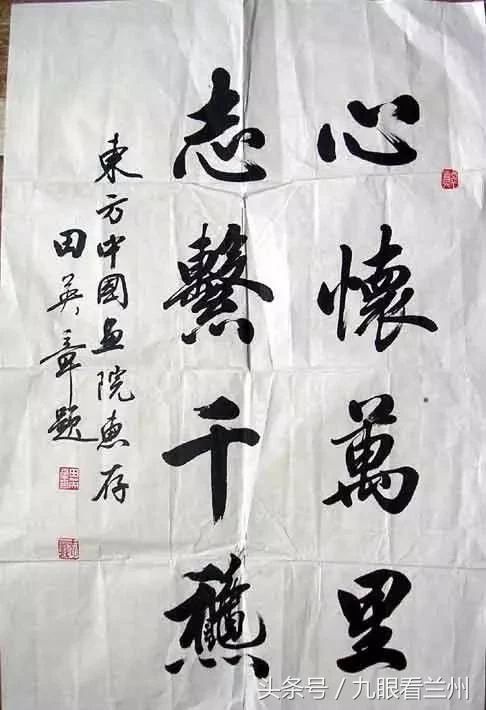 心懷萬里
志繫千龝
東方中國画院惠存
田英章題
头条号 / 九眼看兰州